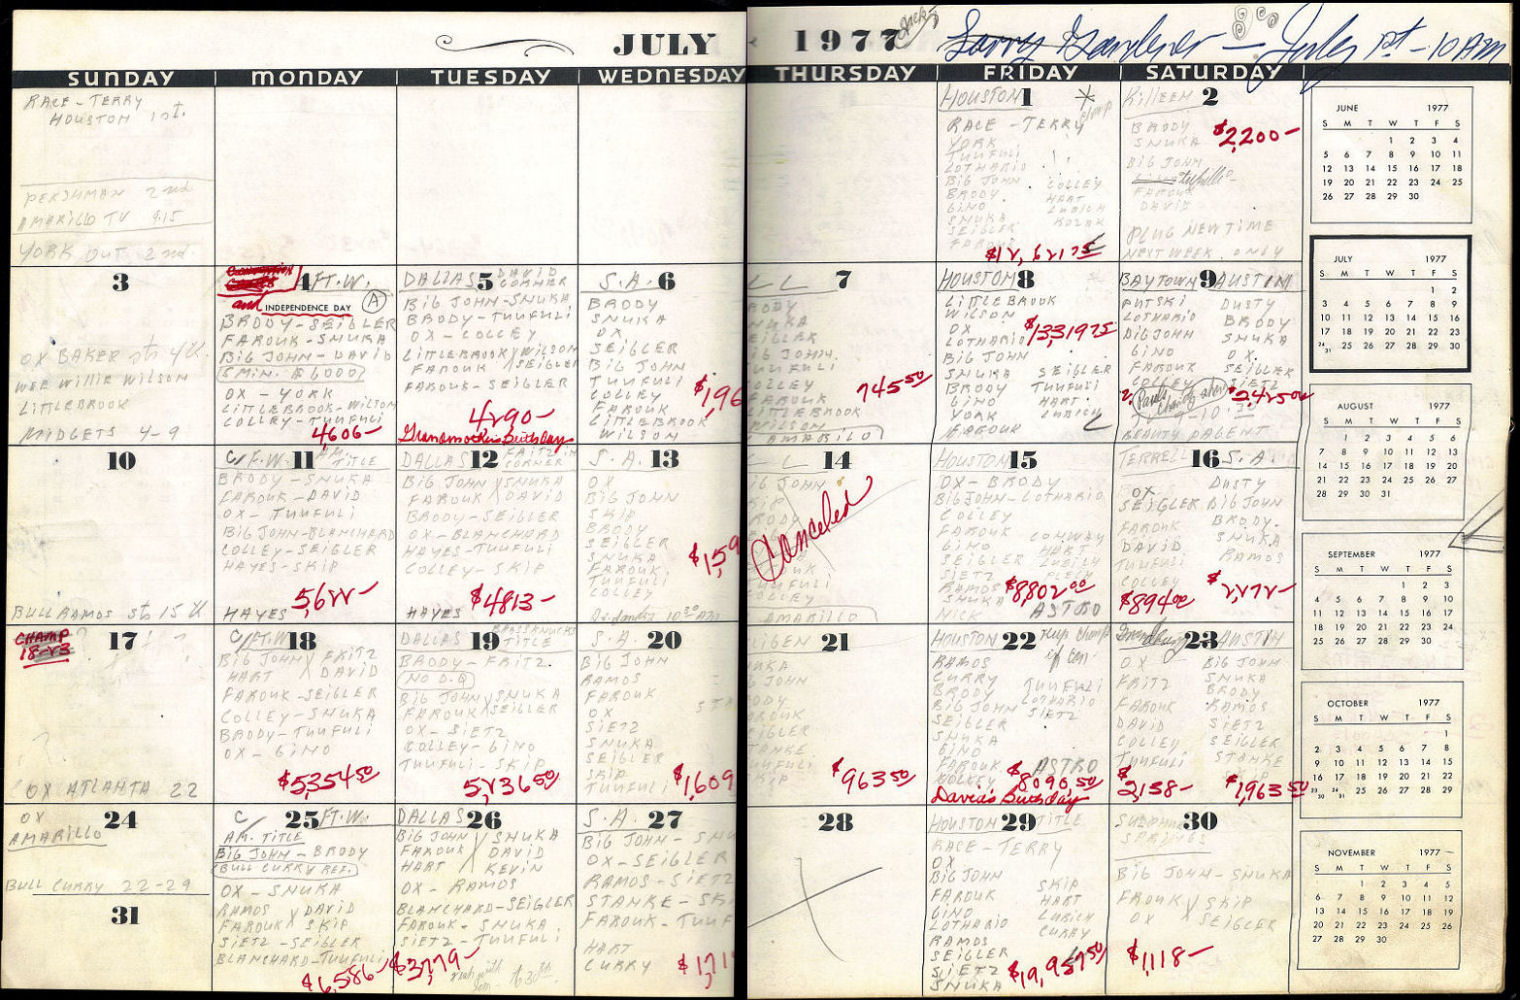 JULY 1977
Larry Gardener - July 1st - 10 AM
SUNDAY MONDAY TUESDAY WEDNESDAY THURSDAY FRIDAY SATURDAY
RACE - TERRY
HOUSTON 1st.
2nd
AMARILLO TV 9:15
YORK OUT 2nd
HOUSTON 1
RACE - TERRY
YORK
TUUFULI
LOTHARIO
BIG JOHN COLLEY
BRODY HART
GINO LUBICH
SNUKA KOZAK
SEIGLER
FAROUK
KILLEEN 2
BRODY
SNUKA
$2,200-
BIG JOHN
FAROUK
DAVID
PLUG NEW TIME
NEXT WEEK ONLY
3
OX BAKER sts 4th
WEE WILLIE WILSON
LITTLEBROOK
MIDGETS 4-9
4 FT. W.
and INDEPENDENCE DAY A
BRODY - SEIGLER
FAROUK - SNUKA
BIG JOHN - DAVID
5 MIN. $6000
OX - YORK
LITTLEBROOK - WILSON
COLLEY - TUUFULI
4606-
DALLAS 5 DAVID
CORNER
BIG JOHN - SNUKA
BRODY - TUUFULI
OX - COLLEY
LITTLEBROOK WILSON
FAROUK SEIGLER
FAROUK - SEIGLER
4290-
Grandmother's Birthday
S. A. 6
BRODY
SNUKA
OX
SEIGLER
BIG JOHN
TUUFULI
COLLEY
FAROUK
LITTLEBROOK
WILSON
$1,96
L L 7
RODY
NUKA
EIGLER
IG JOHN
UUFULI
OLLEY
FAROUK
LITTLEBROOK
WILSON
745 50
AMARILLO
HOUSTON 8
LITTLEBROOK
WILSON
OX
LOTHARIO
$13,319 75
BIG JOHN
SNUKA SEIGLER
BRODY TUUFULI
GINO HART
YORK LUBICH
FAROUK
BAYTOWN 9 AUSTIN
PUTSKI DUSTY
LOTHARIO BRODY
BIG JOHN SNUKA
GINO OX
FAROUK SEIGLER
COLLEY SIETZ
$2,425 00
BEAUTY PAGENT
10
BULL RAMOS sts 15th
C/F.W. 11 AM. TITLE
BRODY - SNUKA
FAROUK - DAVID
OX - TUUFULI
BIG JOHN - BLANCHARD
COLLEY - SEIGLER
HAYES - SKIP
5,622-
HAYES
DALLAS 12 FRITZ IN
CORNER
BIG JOHN SNUKA
FAROUK DAVID
BRODY - SEIGLER
OX - BLANCHARD
HAYES - TUUFULI
COLLEY - SKIP
$4813-
HAYES
S. A. 13
OX
BIG JOHN
SKIP
BRODY
SEIGLER
SNUKA
FAROUK
TUUFULI
COLLEY
$1,59
L L 14
IG JOHN
KIP
RODY
Canceled
UUFULI
OLLEY
AMARILLO
HOUSTON 15
OX - BRODY
BIG JOHN - LOTHARIO
COLLEY
FAROUK CONWAY
GINO HART
SEIGLER LUBICH
SIETZ
RAMOS
SNUKA
NICK
$8802 00
ASTRO
TERRELL 16 S. A.
OX DUSTY
SEIGLER BIG JOHN
FAROUK BRODY
DAVID SNUKA
TUUFULI RAMOS
COLLEY
$894 00
$2,272-
CHAMP
18-23
17
OX ATLANTA 22
C/FT.W. 18
BIG JOHN FRITZ
HART DAVID
FAROUK - SEIGLER
COLLEY - SNUKA
BRODY - TUUFULI
OX - GINO
$5354 50
DALLAS 19 BRASSKNUCKS
TITLE
BRODY - FRITZ
NO D.Q.
BIG JOHN SNUKA
FAROUK SEIGLER
OX - SIETZ
COLLEY - GINO
TUUFULI - SKIP
5,236 50
S. A. 20
BIG JOHN
RAMOS
FAROUK
OX
SIETZ
SNUKA
SEIGLER
SKIP
TUUFULI
$1,609
21
UKA
JOHN
ODY
ROUK
EIGLER
TANKE
UUFULI
KIP
$963 50
HOUSTON 22 Keep champ
RAMOS
CURRY
BRODY TUUFULI
BIG JOHN LOTHARIO
SEIGLER SIETZ
SNUKA
GINO
FAROUK ASTRO
$8090.50
David's Birthday
23 AUSTIN
OX BIG JOHN
FRITZ SNUKA
FAROUK BRODY
DAVID RAMOS
COLLEY SIETZ
TUUFULI SEIGLER
STANKE
$2,158-
$1,963 50
OX
AMARILLO
24
BULL CURRY 22-29
31
C/ 25 FT. W.
AM. TITLE
BIG JOHN - BRODY
BULL CURRY REF.
OX - SNUKA
RAMOS DAVID
FAROUK SKIP
SIETZ - SEIGLER
BLANCHARD - TUUFULI
$6,586-
DALLAS 26
BIG JOHN SNUKA
FAROUK DAVID
HART KEVIN
OX - RAMOS
BLANCHARD - SEIGLER
FAROUK - SNUKA
SIETZ - TUUFULI
$3,779-
S. A. 27
BIG JOHN - SNU
OX - SEIGLER
RAMOS - SIETZ
STANKE - SK
FAROUK - TUUF
HART
CURRY
$1,71
28
HOUSTON 29 TITLE
RACE - TERRY
OX
BIG JOHN SKIP
FAROUK HART
GINO LUBICH
LOTHARIO CURRY
RAMOS
SEIGLER
SIETZ
SNUKA
$19,957 50
SULPHUR
SPRINGS
30
BIG JOHN - SNUKA
FROUK SKIP
OX SEIGLER
$1,118-
JUNE 1977
S M T W T F S
1 2 3 4
5 6 7 8 9 10 11
12 13 14 15 16 17 18
19 20 21 22 23 24 25
26 27 28 29 30
JULY 1977
S M T W T F S
1 2
3 4 5 6 7 8 9
10 11 12 13 14 15 16
17 18 19 20 21 22 23
24/31 25 26 27 28 29 30
AUGUST 1977
S M T W T F S
1 2 3 4 5 6
7 8 9 10 11 12 13
14 15 16 17 18 19 20
21 22 23 24 25 26 27
28 29 30 31
SEPTEMBER 1977
S M T W T F S
1 2 3
4 5 6 7 8 9 10
11 12 13 14 15 16 17
18 19 20 21 22 23 24
25 26 27 28 29 30
OCTOBER 1977
S M T W T F S
1
2 3 4 5 6 7 8
9 10 11 12 13 14 15
16 17 18 19 20 21 22
23/30 24/31 25 26 27 28 29
NOVEMBER 1977
S M T W T F S
1 2 3 4 5
6 7 8 9 10 11 12
13 14 15 16 17 18 19
20 21 22 23 24 25 26
27 28 29 30